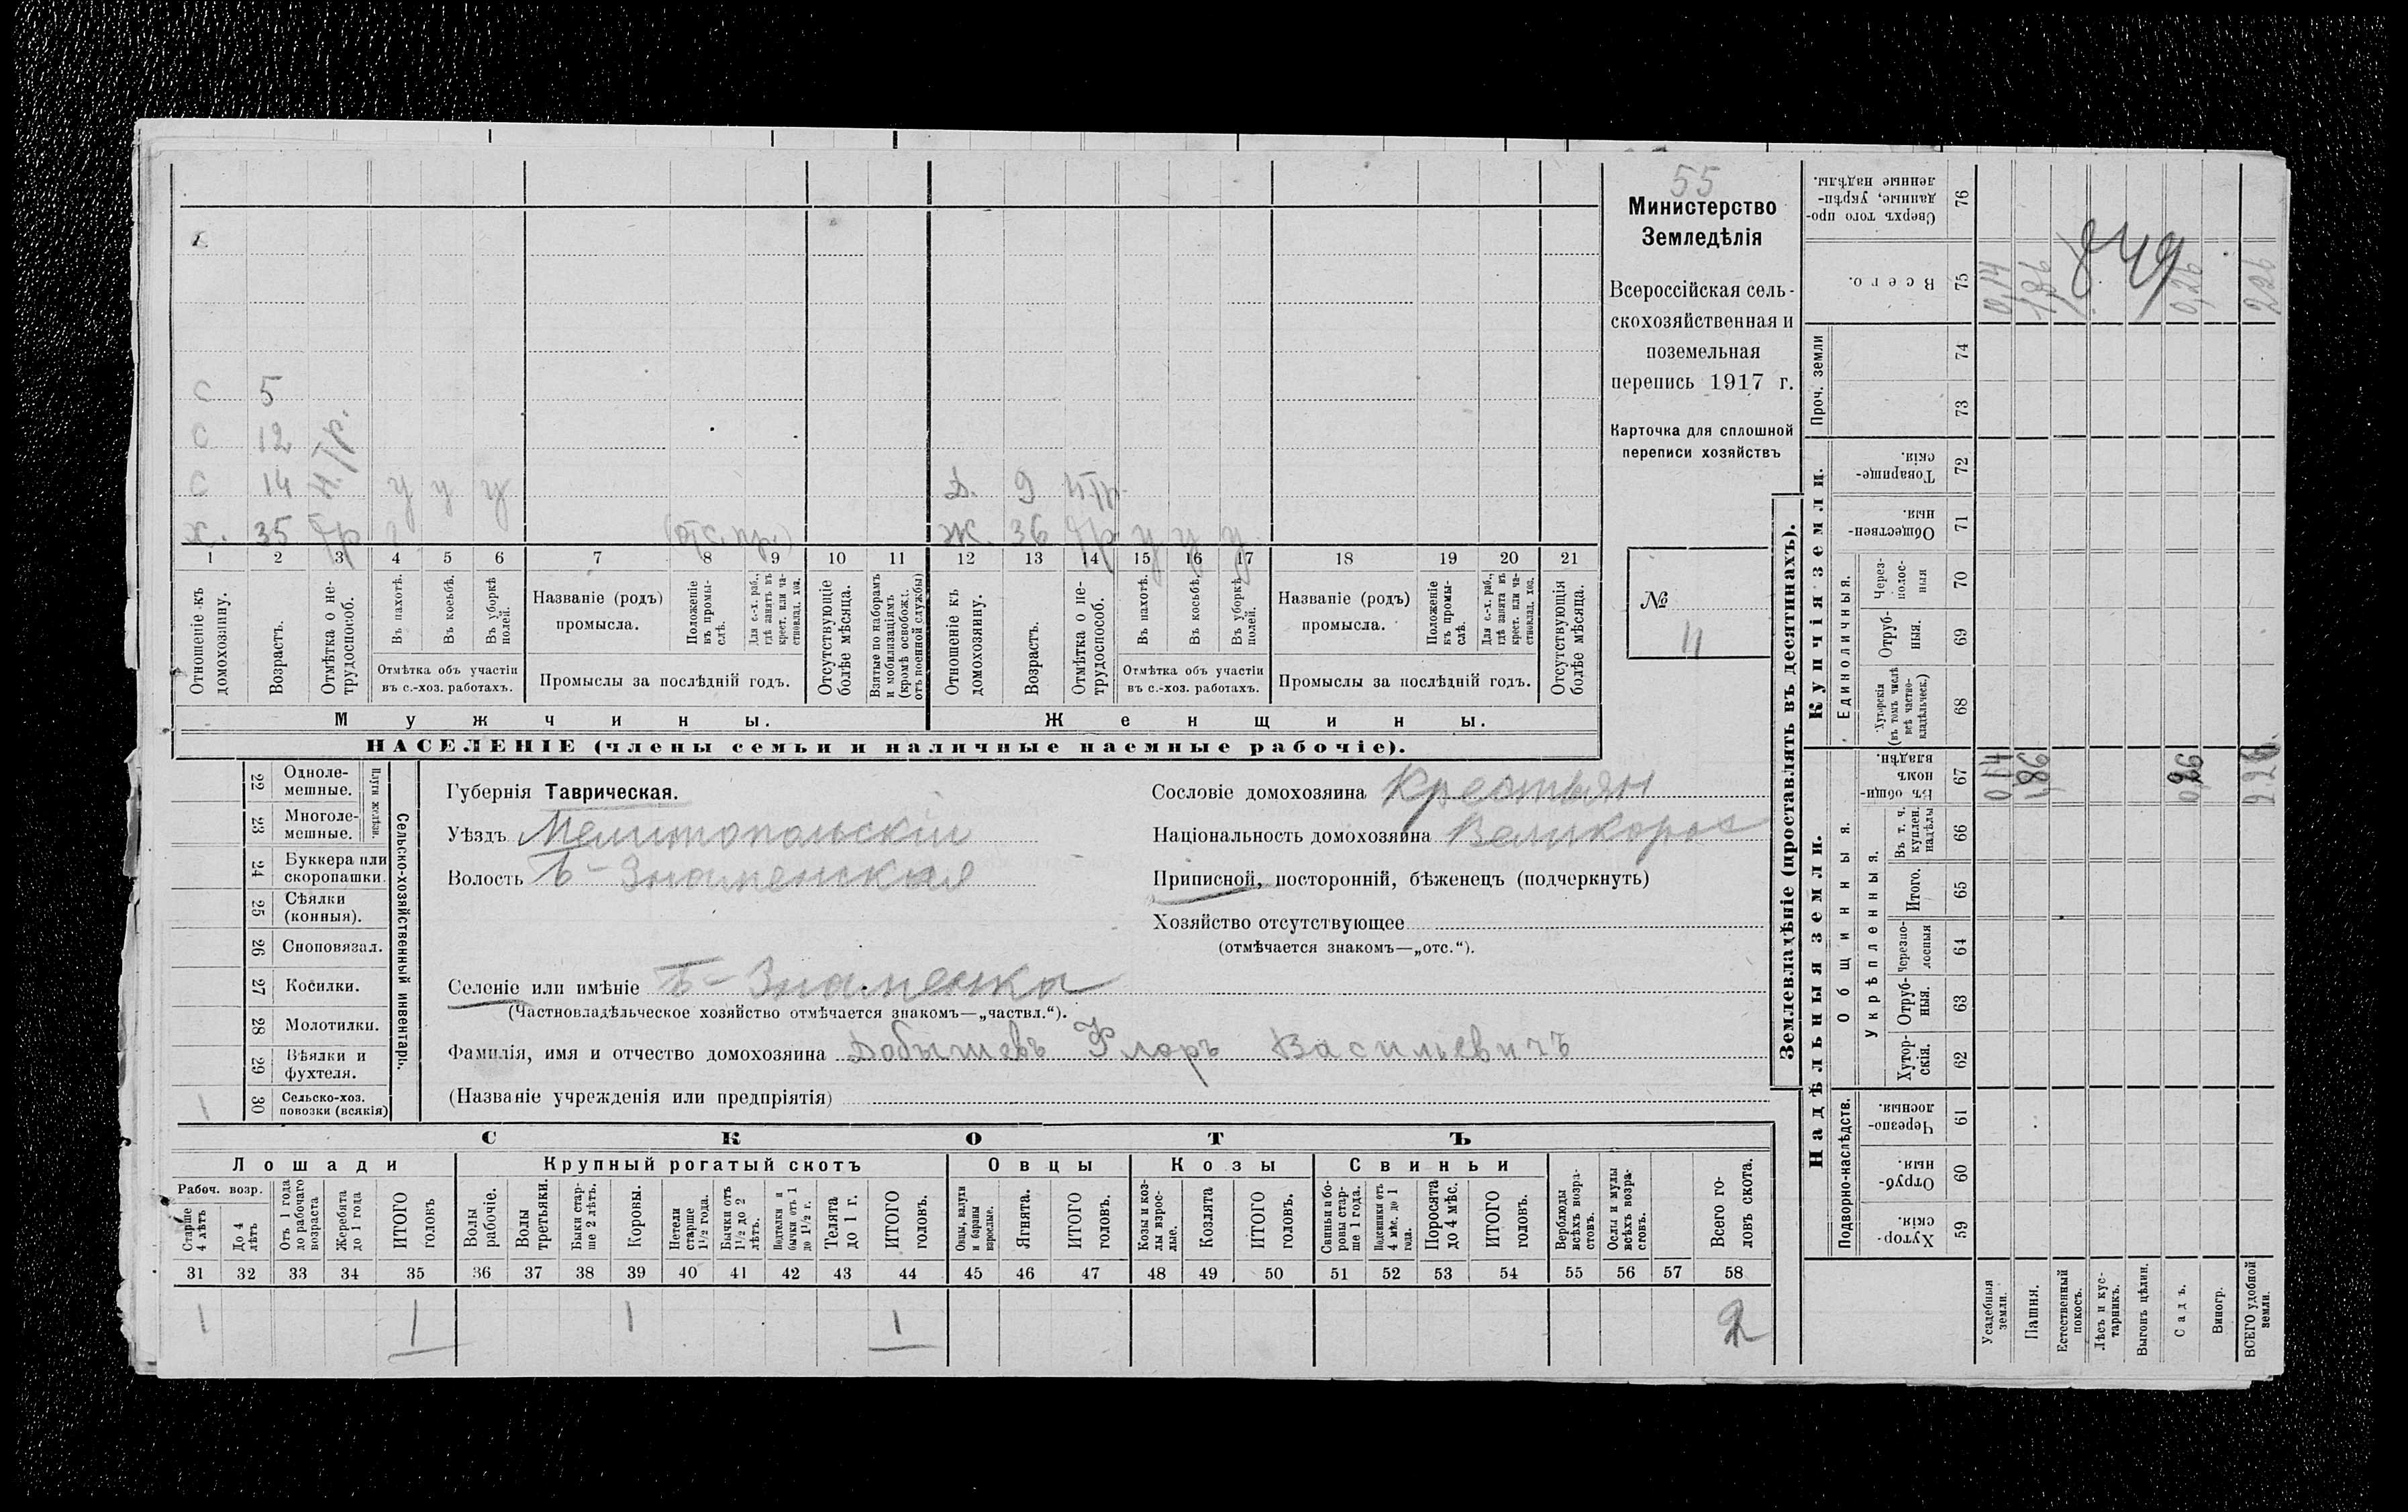 55
Министерство
Земледѣлія
Всероссійская сель-
скохозяйственная и
поземельная
перепись 1917 г.
Карточка для сплошной
переписи хозяйствъ
№
11
с 5
с 12
с 14 н.тр. у у у
х. 35 тр (отс. пр.)
Д. 9 н тр.
Ж. 36 тр у у у
1 2 3 4 5 6 7 8 9 10 11 12 13 14 15 16 17 18 19 20 21
Отношеніе къ домохозяину.
Возрастъ.
Отмѣтка о не-трудоспособ.
Въ пахотѣ.
Въ косьбѣ.
Въ уборкѣ полей.
Отмѣтка объ участіи
въ с.-хоз. работахъ.
Названіе (родъ)
промысла.
Положеніе въ промы-слѣ.
Для с.-х. раб., гдѣ занятъ въ крест. или ча-стновлад. хоз.
Промыслы за послѣдній годъ.
Отсутствующіе болѣе мѣсяца.
Взятые по наборамъ и мобилизаціямъ (кромѣ освобожд. отъ военной службы)
Отношеніе къ домохозяину.
Возрастъ.
Отмѣтка о не-трудоспособ.
Въ пахотѣ.
Въ косьбѣ.
Въ уборкѣ полей.
Отмѣтка объ участіи
въ с.-хоз. работахъ.
Названіе (родъ)
промысла.
Положеніе въ промы-слѣ.
Для с.-х. раб., гдѣ занята въ крест. или ча-стновлад. хоз.
Промыслы за послѣдній годъ.
Отсутствующія болѣе мѣсяца.
Мужчины.
Женщины.
НАСЕЛЕНІЕ (члены семьи и наличные наемные рабочіе).
Сельско-хозяйственный инвентарь.
Плуги желѣзн.
22 Одноле-мешные.
23 Многоле-мешные.
24 Буккера или скоропашки.
25 Сѣялки (конныя).
26 Сноповязал.
27 Косилки.
28 Молотилки.
29 Вѣялки и фухтеля.
1 30 Сельско-хоз. повозки (всякія)
Губернія Таврическая.
Уѣздъ Мелитопольскій
Волость Б-Знаменская
Сословіе домохозяина Крестьян
Національность домохозяина Великорос
Приписной, посторонній, бѣженецъ (подчеркнуть)
Хозяйство отсутствующее
(отмѣчается знакомъ—„отс.“).
Селеніе или имѣніе Б-Знаменка
(Частновладѣльческое хозяйство отмѣчается знакомъ—„частвл.“).
Фамилія, имя и отчество домохозяина Добышевъ Флоръ Васильевичъ
(Названіе учрежденія или предпріятія)
СКОТЪ
Лошади
Крупный рогатый скотъ
Овцы
Козы
Свиньи
Рабоч. возр.
Старше 4 лѣтъ
До 4 лѣтъ
Отъ 1 года до рабочаго возраста
Жеребята до 1 года
ИТОГО головъ
Волы рабочіе.
Волы третьяки.
Быки стар-ше 2 лѣтъ.
Коровы.
Нетели старше 1½ года.
Бычки отъ 1½ до 2 лѣтъ.
Подтелки и бычки отъ 1 до 1½ г.
Телята до 1 г.
ИТОГО головъ.
Овцы, валухи и бараны взрослые.
Ягнята.
ИТОГО головъ.
Козы и коз-лы взрос-лые.
Козлята
ИТОГО головъ.
Свиньи и бо-ровы стар-ше 1 года.
Подсвинки отъ 4 мѣс. до 1 года.
Поросята до 4 мѣс.
ИТОГО головъ.
Верблюды всѣхъ возра-стовъ.
Ослы и мулы всѣхъ возра-стовъ.
Всего го-ловъ скота.
31 32 33 34 35 36 37 38 39 40 41 42 43 44 45 46 47 48 49 50 51 52 53 54 55 56 57 58
1 1 1 1 2
Землевладѣніе (проставлять въ десятинахъ).
Надѣльныя земли.
Купчія земли.
Проч. земли
Подворно-наслѣдств.
Общинныя.
Укрѣпленныя.
Единоличныя.
Сверхъ того про-данные, укрѣп-ленные надѣлы. 76
Всего. 75
74
73
Товарище-скія. 72
Обществен-ныя. 71
Через-полос-ныя 70
Отруб-ныя. 69
Хуторскія (въ томъ числѣ всѣ частно-владѣльческ.) 68
Въ общи-номъ владѣн. 67
Въ т. ч. куплен. надѣлы 66
Итого. 65
Черезпо-лосныя 64
Отруб-ныя. 63
Хутор-скія. 62
Черезпо-лосныя. 61
Отруб-ныя. 60
Хутор-скія. 59
Усадебныя земли.
Пашня.
Естественный покосъ.
Лѣсъ и кус-тарникъ.
Выгонъ цѣлин.
Садъ.
Виногр.
ВСЕГО удобной земли.
0,14 1,86 0,26 2,26
0,14 1,86 0,26 2,26
849